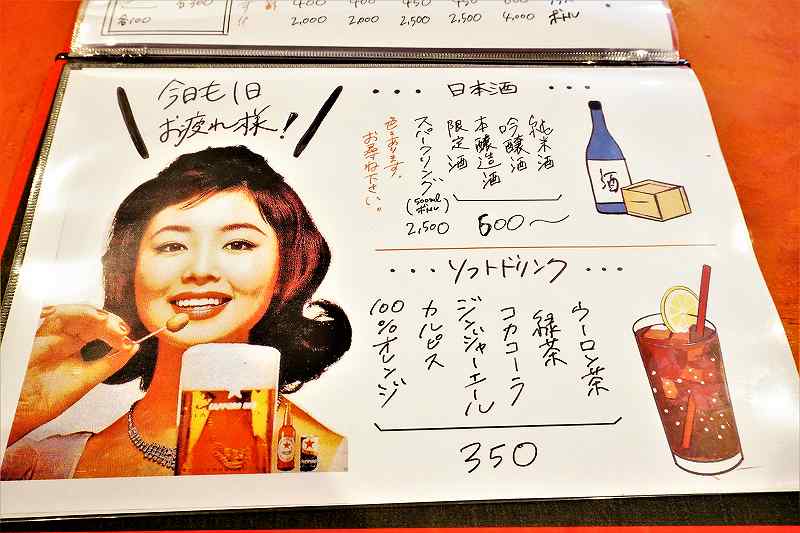 各100
2,000 2,000 2,500 2,500 4,000 ボトル
今日も1日
お疲れ様!
日本酒
純米酒
吟醸酒
本醸造酒
限定酒
600〜
スパークリング
(500ml ボトル)
2,500
色々あります。
お尋ね下さい。
酒
ソフトドリンク
ウーロン茶
緑茶
コカコーラ
ジンジャーエール
カルピス
100%オレンジ
350